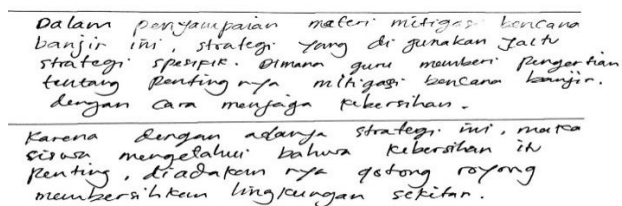 Dalam penyampaian materi mitigasi bencana
banjir ini, strategi yang di gunakan yaitu
strategi spesifik. Dimana guru memberi pengertian
tentang penting nya mitigasi bencana banjir.
dengan cara menjaga kebersihan.
Karena dengan adanya strategi ini, maka
siswa mengetahui bahwa kebersihan itu
penting, diadakan nya gotong royong
membersihkan lingkungan sekitar.